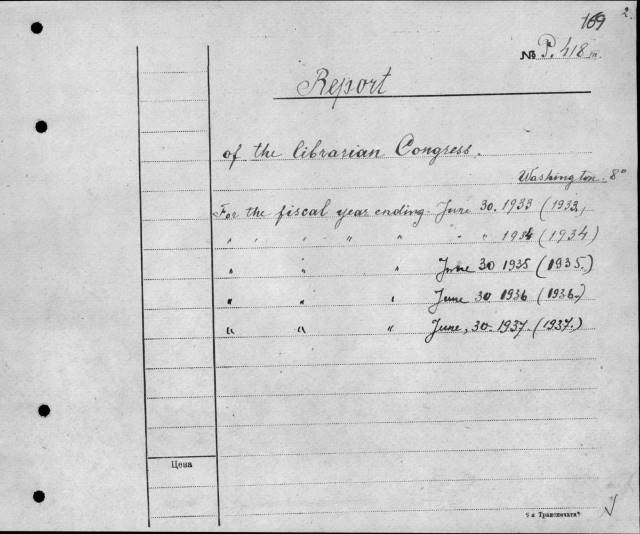 169 2.
№ P. 418 III
Report
of the librarian Congress.
Washington. 8°
For the fiscal year ending June 30. 1933 (1933)
" " " " " " " 1934 (1934)
" " " June 30 1935 (1935.)
" " " June 30 1936 (1936.)
" " " June, 30. 1937. (1937.)
Цена
6 я Транспечати"